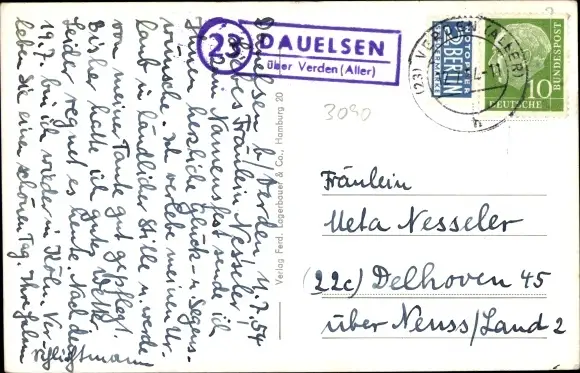 Dauelsen b/Verden 11.7.54
Liebes Fräulein Nesseler!
Zum Namensfest sende ich
Ihnen herzliche Glück- u. Segens-
wünsche. Ich verlebe meinen Ur-
laub in ländlicher Stille u. werde
von meiner Tante gut gepflegt.
Bisher hatte ich gutes Wetter.
Leider regnet es heute. Nach dem
19.7. bin ich wieder in Köln. Ver-
leben Sie einen schönen Tag. Ihre
23
DAUELSEN
über Verden (Aller)
NOTOPFER
2 BERLIN
STEUERMARKE
(23) VERDEN (ALLER)
h
DEUTSCHE
BUNDESPOST
10
3090
Verlag Ferd. Lagerbauer & Co., Hamburg 20
Fräulein
Meta Nesseler
(22c) Delhoven 45
über Neuss/Land 2